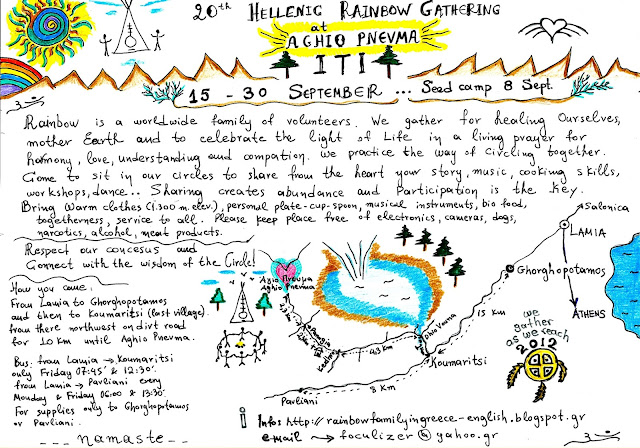 20th HELLENIC RAINBOW GATHERING
at
AGHIO PNEVMA
ITI
15 - 30 SEPTEMBER ... Seed camp 8 Sept.
Rainbow is a worldwide family of volunteers. We gather for healing Ourselves,
mother Earth and to celebrate the light of Life in a living prayer for
harmony, love, understanding and compation. We practice the way of Circling together.
Come to sit in our circles to share from the heart your story, music, cooking skills,
workshops, dance.. Sharing creates abundance and Participation is the key.
Bring Warm clothes (1.300 m. elev.), personal plate-cup-spoon, musical instruments, bio food,
togetherness, service to all. Please keep place free of electronics, cameras, dogs,
narcotics, alcohol, meat products.
Respect our concesus and
Connect with the wisdom of the Circle!
How you came:
From Lamia to Ghorghopotamos
and then to Koumaritsi (last village).
from there northwest on dirt road
for 10 km until Aghio Pnevma.
Bus. from Lamia → Koumaritsi
only Friday 07:45' & 12:30'.
from Lamia → Pavliani every
Monday & Friday 06:00 & 13:30'
For supplies only to Ghorghopotamos
or Pavliani.
--- namaste ---
Αγιο Πνευμα
Aghio Pnevma
Salonica
LAMIA
Ghorghopotamos
ATHENS
15 km
Koumaritsi
8 Km
Pavliani
we
gather
as we teach
2012
i Infos http://rainbowfamilyingreece-english.blogspot.gr
email → foculizer@yahoo.gr